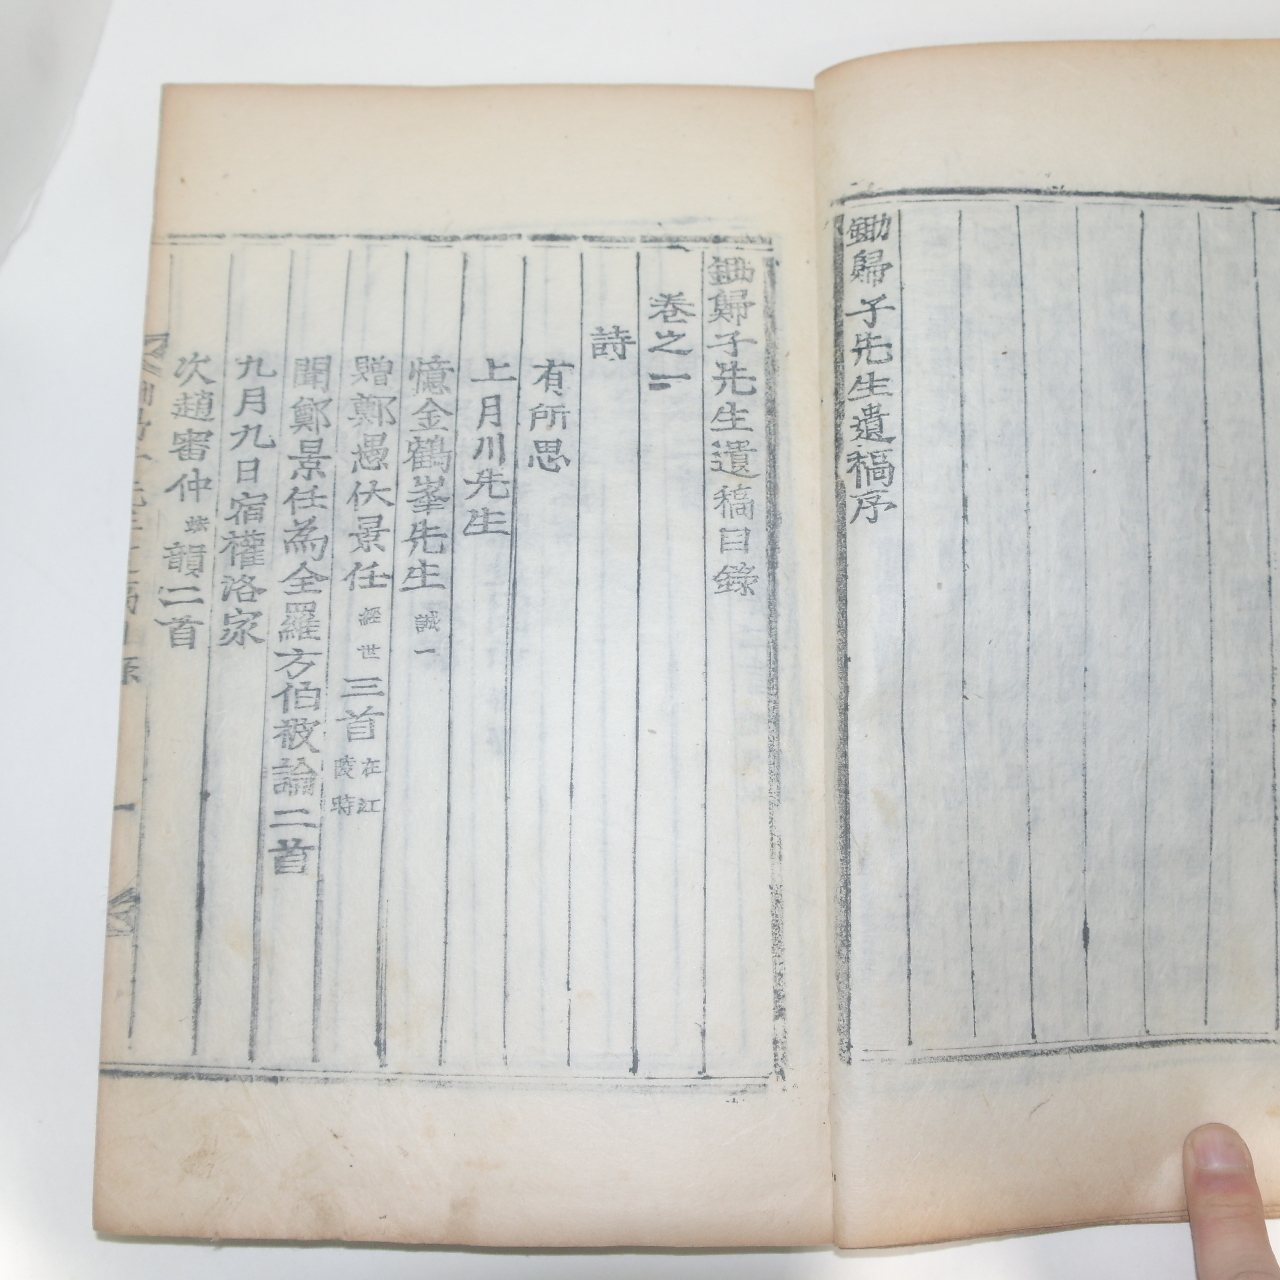 鋤歸子先生遺稿序
鋤歸子先生遺稿目錄
卷之一
詩
有所思
上月川先生
憶金鶴峯先生 誠一
贈鄭愚伏景任 經世 三首 在江陵時
聞鄭景任為全羅方伯被論二首
九月九日宿權洛家
次趙審仲 韻二首